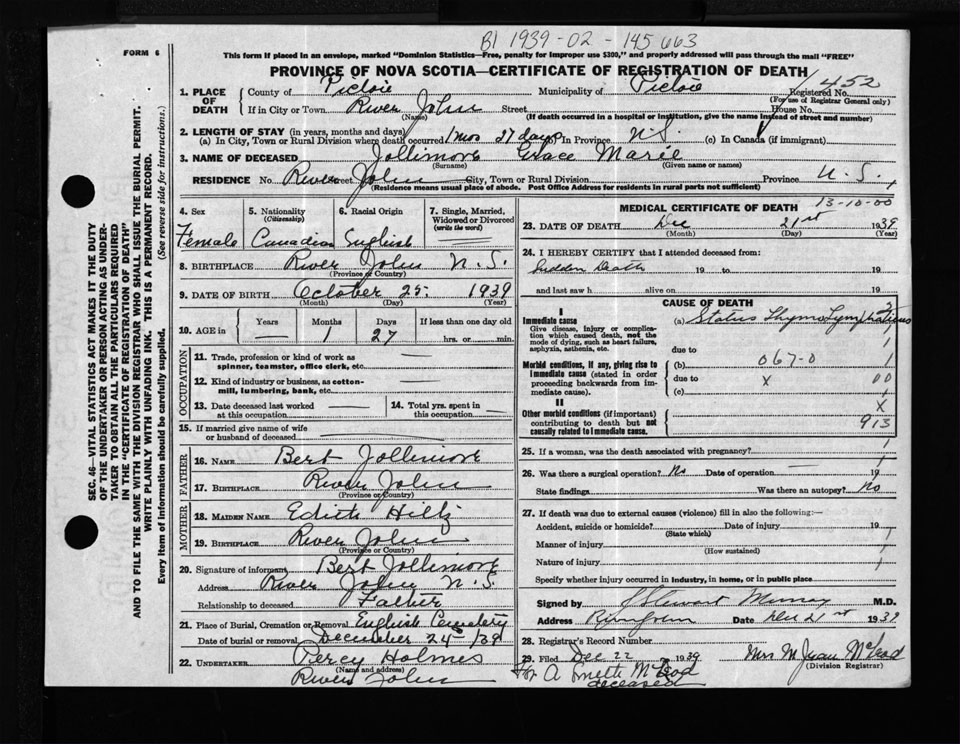 B1 1939-02-145663
FORM 6
This form if placed in an envelope, marked "Dominion Statistics—Free, penalty for improper use $300," and properly addressed will pass through the mail "FREE"
PROVINCE OF NOVA SCOTIA—CERTIFICATE OF REGISTRATION OF DEATH
452
SEC. 46—VITAL STATISTICS ACT MAKES IT THE DUTY
OF THE UNDERTAKER OR PERSON ACTING AS UNDER-
TAKER TO OBTAIN ALL THE PARTICULARS REQUIRED
IN THE "CERTIFICATE OF REGISTRATION OF DEATH"
AND TO FILE THE SAME WITH THE DIVISION REGISTRAR WHO SHALL ISSUE THE BURIAL PERMIT.
WRITE PLAINLY WITH UNFADING INK. THIS IS A PERMANENT RECORD.
Every item of information should be carefully supplied. (See reverse side for instructions.)
1. PLACE OF DEATH
County of Pictou Municipality of Pictou Registered No.
(For use of Registrar General only)
If in City or Town River John Street House No.
(Name) (If death occurred in a hospital or institution, give the name instead of street and number)
2. LENGTH OF STAY (in years, months and days)
(a) In City, Town or Rural Division where death occurred 1 mos 27 days (b) In Province N.S. (c) In Canada (if immigrant)
3. NAME OF DECEASED Jollimore Grace Marie
(Surname) (Given name or names)
RESIDENCE No. River Street John City, Town or Rural Division Province N.S.
(Residence means usual place of abode. Post Office Address for residents in rural parts not sufficient)
4. Sex 5. Nationality (Citizenship) 6. Racial Origin 7. Single, Married, Widowed or Divorced (write the word)
Female Canadian English
8. BIRTHPLACE River John N.S.
(Province or Country)
9. DATE OF BIRTH October 25 1939
(Month) (Day) (Year)
10. AGE in Years Months Days If less than one day old
1 27 hrs. or min.
OCCUPATION
11. Trade, profession or kind of work as
spinner, teamster, office clerk, etc.
12. Kind of industry or business, as cotton-
mill, lumbering, bank, etc.
13. Date deceased last worked at this occupation 14. Total yrs. spent in this occupation
15. If married give name of wife
or husband of deceased
FATHER
16. NAME Bert Jollimore
17. BIRTHPLACE River John
(Province or Country)
MOTHER
18. MAIDEN NAME Edith Hiltz
19. BIRTHPLACE River John
(Province or Country)
20. Signature of informant Bert Jollimore
Address River John N.S.
Relationship to deceased Father
21. Place of Burial, Cremation or Removal English Cemetery
Date of burial or removal December 24th/39
22. UNDERTAKER Percy Holmes
(Name and address)
River John
MEDICAL CERTIFICATE OF DEATH 13-10-00
23. DATE OF DEATH Dec 21st 1939
(Month) (Day) (Year)
24. I HEREBY CERTIFY that I attended deceased from:
Sudden Death 19 to 19
and last saw h alive on 19
CAUSE OF DEATH
I
Immediate cause (a) Status Thymo Lymphaticus
Give disease, injury or complica-
tion which caused death, not the
mode of dying, such as heart failure,
asphyxia, asthenia, etc.
due to
Morbid conditions, if any, giving rise to (b) 067-0 1
immediate cause (stated in order due to x 00
proceeding backwards from im-
mediate cause). (c)
II
Other morbid conditions (if important) x
contributing to death but not 913
causally related to immediate cause.
25. If a woman, was the death associated with pregnancy?
26. Was there a surgical operation? No Date of operation 19
State findings Was there an autopsy? No
27. If death was due to external causes (violence) fill in also the following:—
Accident, suicide or homicide? Date of injury 19
(State which)
Manner of injury
(How sustained)
Nature of injury
Specify whether injury occurred in industry, in home, or in public place
Signed by J Stewart Murray M.D.
Address Date Dec 21st 1939
28. Registrar's Record Number
29. Filed Dec 22 1939 Mrs M McLeod
(Division Registrar)
for A McLeod
deceased